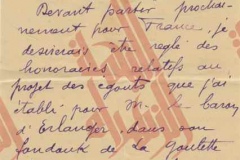 Devant partir prochai-
nement pour France, je
desirerais être réglé des
honoraires relatifs au
projet des égouts que j'ai
établi pour M. le baron
d'Erlanger, dans son
fondouk de La Goulette